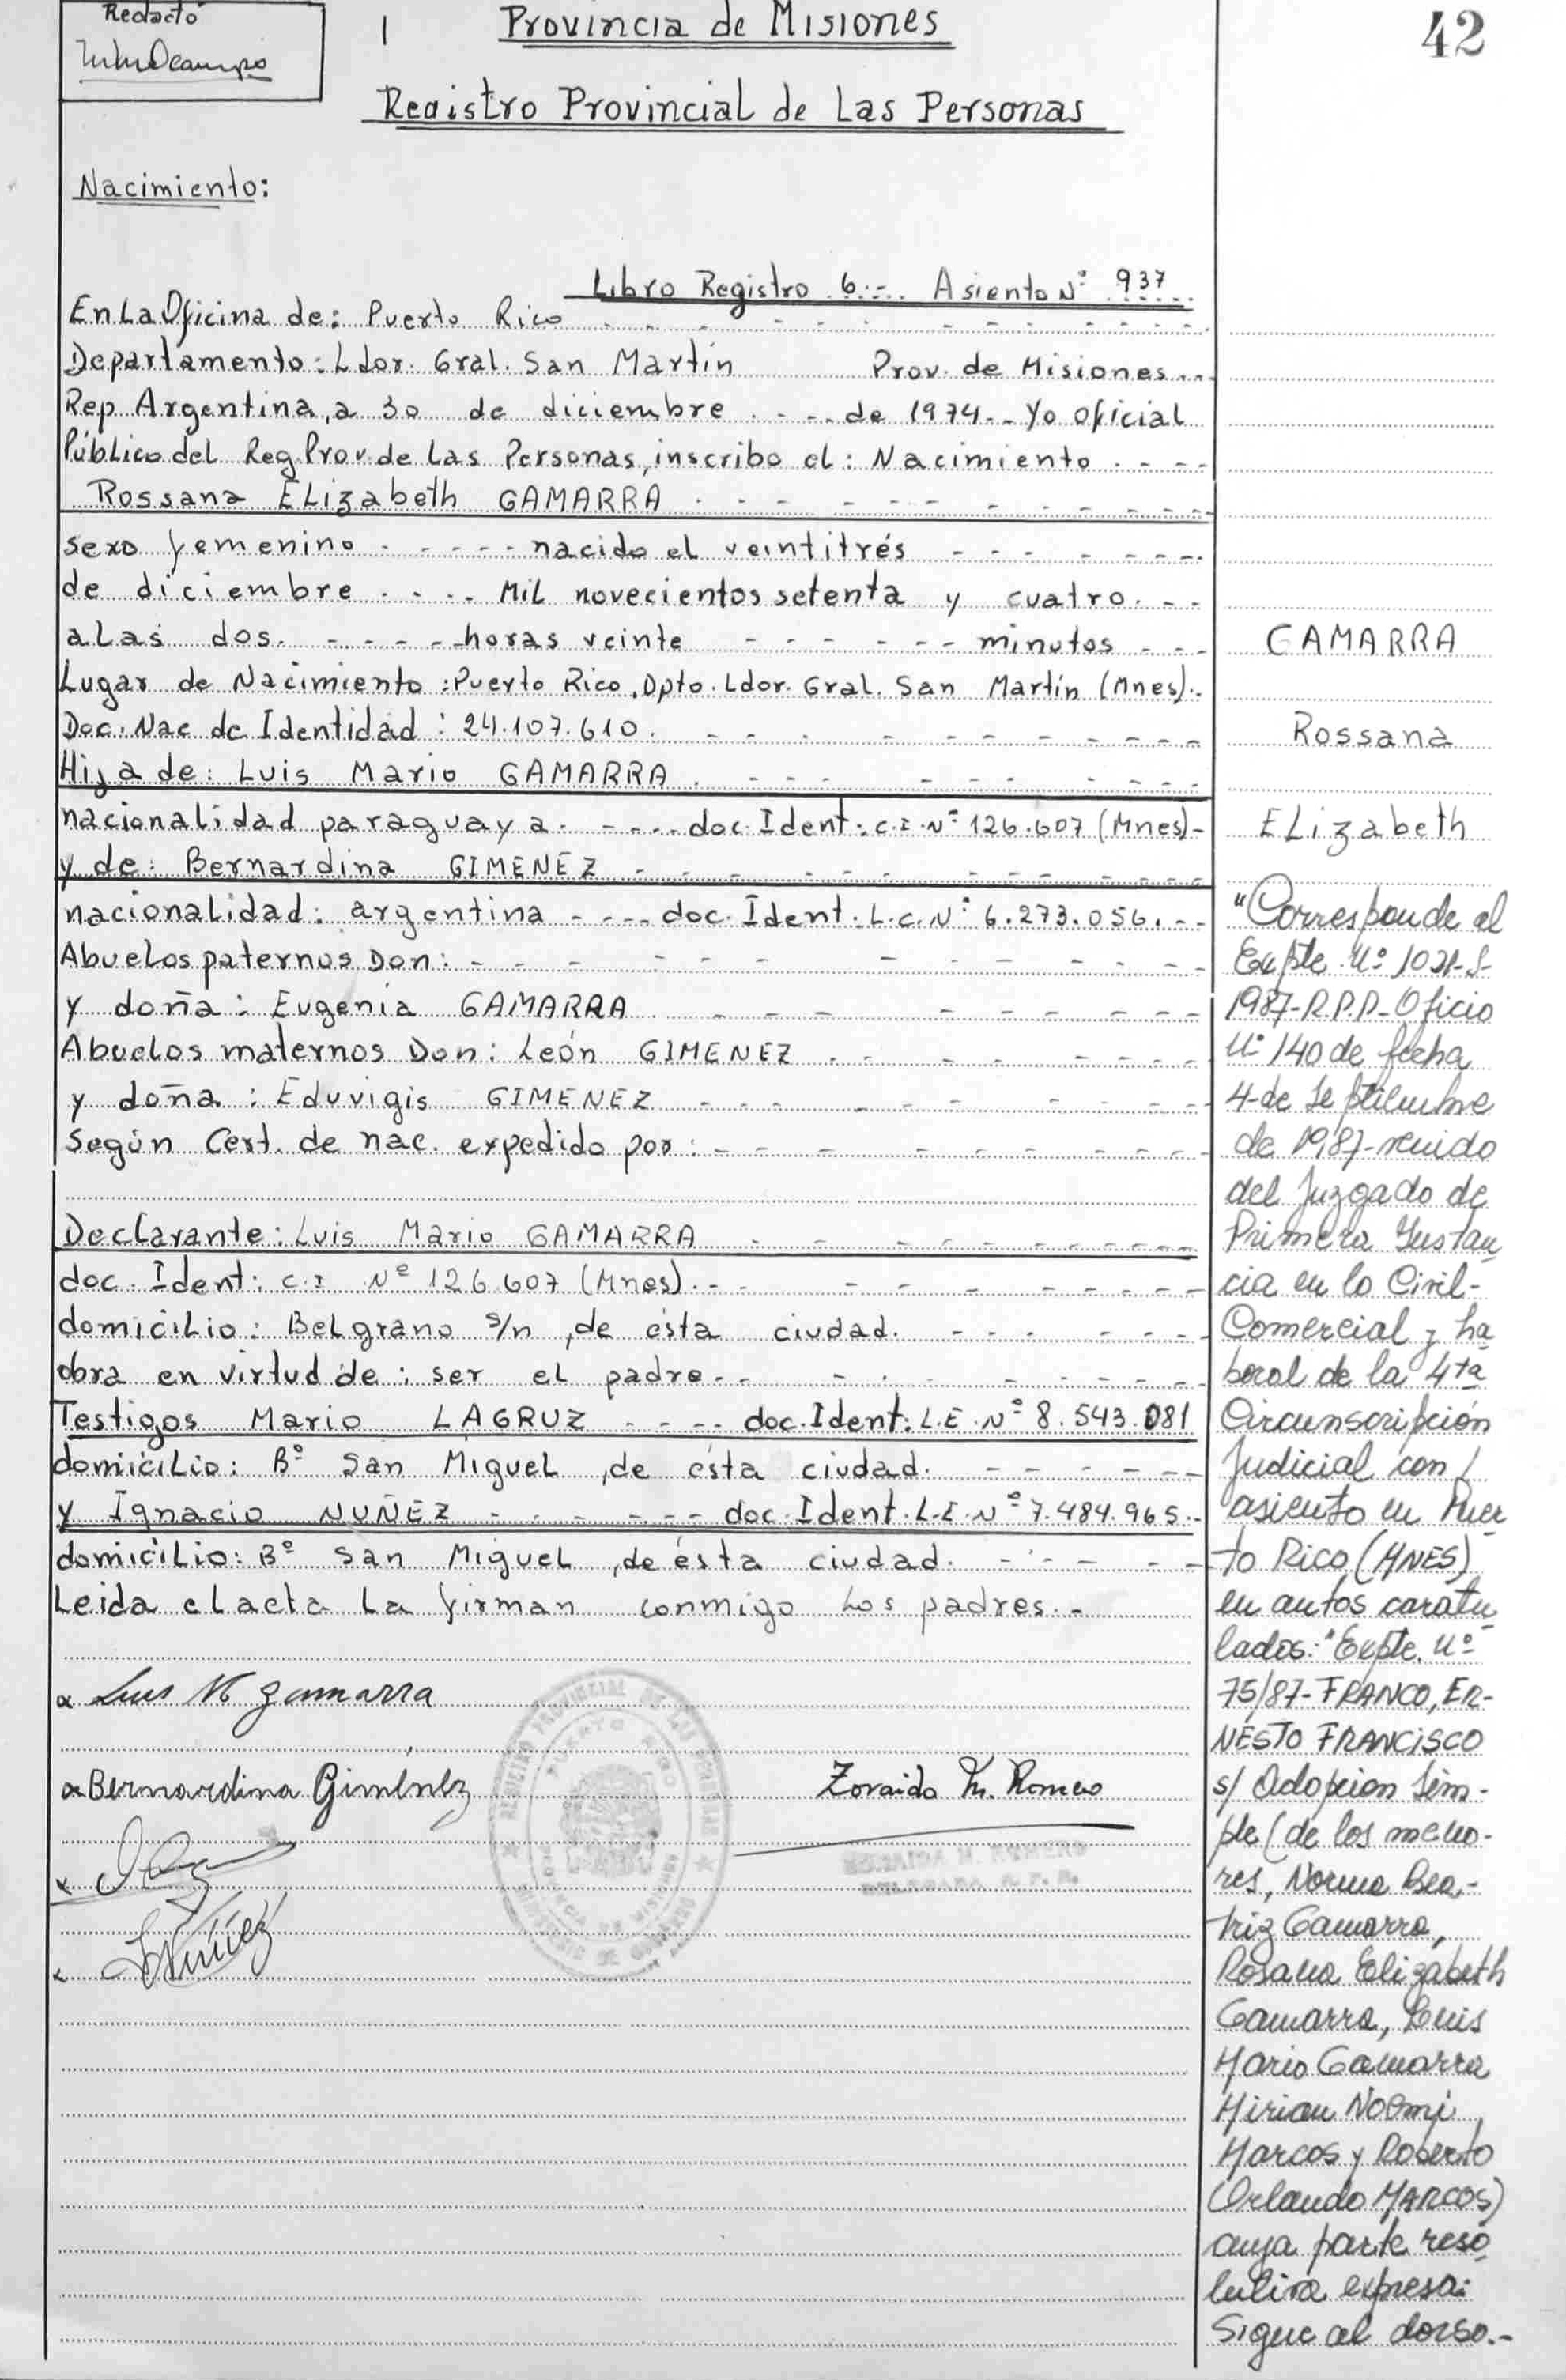 Redactó
1
Provincia de Misiones
42
Registro Provincial de Las Personas
Nacimiento:
Libro Registro 6.-.. Asiento Nº 937
En La Oficina de: Puerto Rico
Departamento: Ldor. Gral. San Martín Prov. de Misiones...
Rep. Argentina, a 30 de diciembre de 1974.- Yo oficial
Público del Reg. Prov. de Las Personas, inscribo el: Nacimiento
Rossana Elizabeth GAMARRA
sexo femenino nacido el veintitrés
de diciembre Mil novecientos setenta y cuatro.
a las dos. horas veinte minutos
Lugar de Nacimiento: Puerto Rico, Dpto. Ldor. Gral. San Martín (Mnes).
Doc. Nac de Identidad: 24.107.610.
Hija de: Luis Mario GAMARRA
nacionalidad paraguaya. doc. Ident: C.I. Nº 126.607 (Mnes)-
y de: Bernardina GIMENEZ
nacionalidad: argentina doc. Ident: L.C. Nº 6.273.056.-
Abuelos paternos Don:
y doña: Eugenia GAMARRA
Abuelos maternos Don: León GIMENEZ
y doña: Eduvigis GIMENEZ
Según Cert. de nac. expedido por:
Declarante: Luis Mario GAMARRA
doc. Ident: C.I Nº 126.607 (Mnes).-
domicilio: Belgrano s/n, de ésta ciudad.
obra en virtud de: ser el padre.-
Testigos Mario LAGRUZ doc. Ident: L.E. Nº 8.543.081
domicilio: Bº San Miguel, de ésta ciudad.
y Ignacio NUÑEZ doc. Ident. L.E. Nº 7.484.965.-
domicilio: Bº San Miguel, de ésta ciudad.
Leida el acta La firman conmigo Los padres.-
x Luis M Gamarra
x Bernardina Giménez
Zoraida M. Romero
ZORAIDA M. ROMERO
x
x Nuñez
GAMARRA
Rossana
Elizabeth
"Corresponde al
Expte. Nº 1021-S-
1987-R.P.P-Oficio
Nº 140 de fecha
4-de Septiembre
de 1987-venido
del Juzgado de
Primera Instan
cia en lo Civil-
Comercial y La
boral de la 4ta
Circunscripción
Judicial con
asiento en Puer
to Rico (MNES)
en autos caratu
lados: "Expte. Nº
75/87-FRANCO, ER-
NESTO FRANCISCO
s/ Adopcion Sim-
ple (de los meno-
res, Norma Bea-
triz Gamarra,
Rosana Elizabeth
Gamarra, Luis
Mario Gamarra
Mirian Noemi
Marcos y Roberto
Orlando MARCOS)
cuya parte reso
lutiva expresa:
Sigue al dorso.-